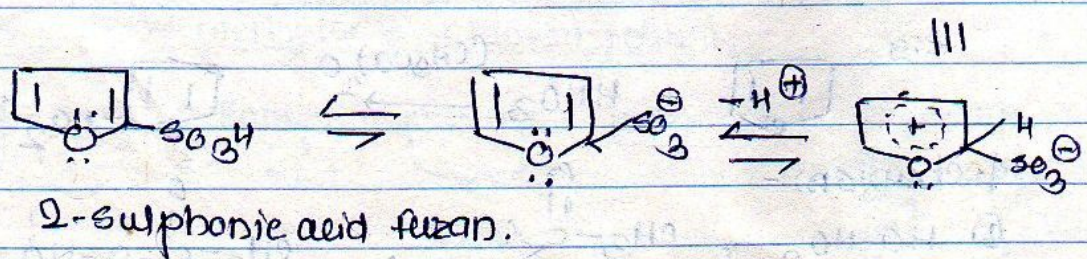 |||
SO3H ⇌ SO3⊖ -H⊕ ⇌ + H
O O O SO3⊖
2-sulphonic acid furan.